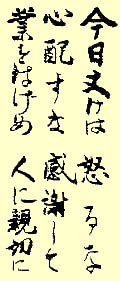 今日丈けは　怒るな
心配すな　感謝して
業をはけめ　人に親切に